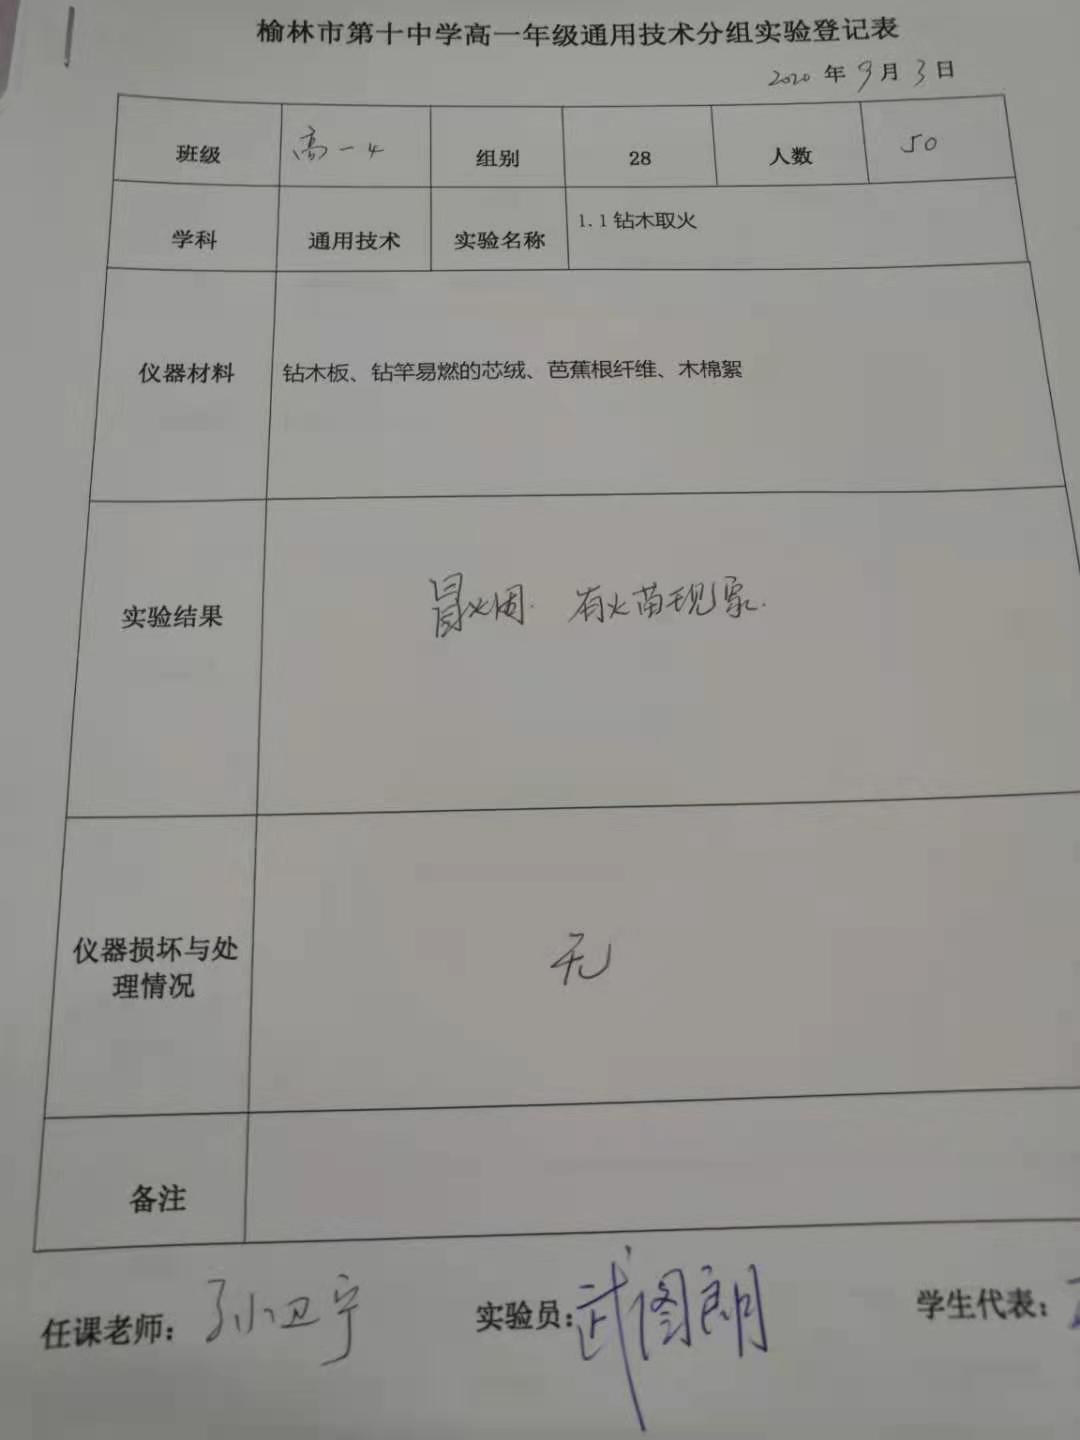 榆林市第十中学高一年级通用技术分组实验登记表
2020 年 9 月 3 日
班级 高一4 组别 28 人数 50
学科 通用技术 实验名称 1.1钻木取火
仪器材料 钻木板、钻竿易燃的芯绒、芭蕉根纤维、木棉絮
实验结果 冒火烟. 有火苗现象.
仪器损坏与处
理情况
无
备注
任课老师: 孙卫宁 实验员: 武图朗 学生代表: